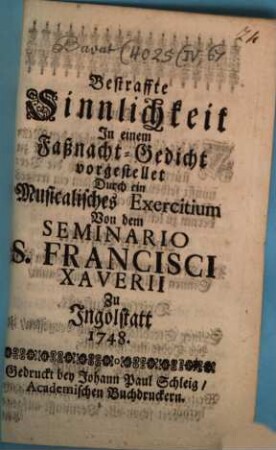 Bavar. 4025 (IV, 6
74
Bestraffte
Sinnlichkeit
In einem
Faßnacht-Gedicht
vorgestellet
Durch ein
Musicalisches Exercitium
Von dem
SEMINARIO
S. FRANCISCI
XAVERII
Zu
Ingolstatt
1748.
Gedruckt bey Johann Paul Schleig /
Academischen Buchdruckern.